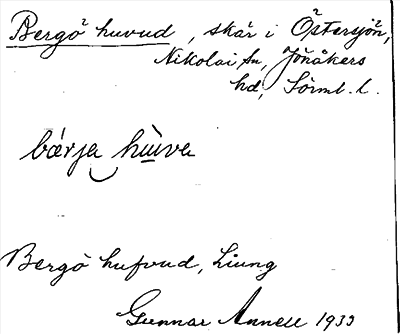 Bergö huvud, skär i Östersjön,
Nikolai sn, Jönåkers
hd, Sörml. l.
bärja hùva
Bergö hufvud, Liung
Gunnar Annell 1933